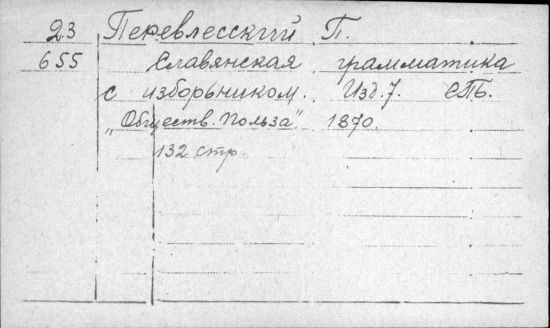 23 Перевлесский П.
655 Славянская грамматика
с изборьником. Изд. 7. СПб.
„Обществ. Польза". 1870.
132 стр.